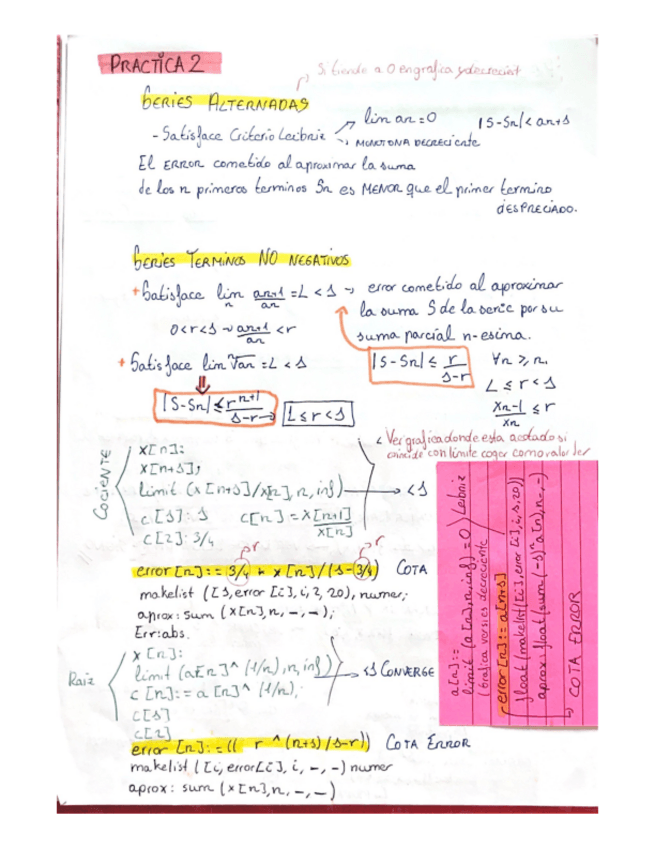 PRACTICA 2
Si tiende a 0 en grafica y decrecient
SERIES ALTERNADAS
- Satisface Criterio Leibniz → lim an = 0 |S-Sn| < an+1
↘ MONOTONA DECRECIENTE
El ERROR cometido al aproximar la suma
de los n primeros terminos Sn es MENOR que el primer termino
DESPRECIADO.
SERIES TERMINOS NO NEGATIVOS
+ Satisface lim n an+1/an = L < 1 → error cometido al aproximar
la suma S de la serie por su
suma parcial n-esima.
0<r<1 → an+1/an < r
|S-Sn| ≤ r/1-r ∀n ≥ n,
+ Satisface lim ⁿ√an = L < 1
L ≤ r < 1
|S-Sn| ≤ r^n+1/1-r → L ≤ r < 1
xn-1/xn ≤ r
Ver grafica donde esta acotado si
coincide con limite coger como valor
COCIENTE
x[n]:
x[n+1];
limit (x[n+1]/x[n], n, inf) → <1
c[1]: 1 c[n] = x[n+1]/x[n]
c[2]: 3/4
r r
error [n]:= 3/4 * x[n]/(1-3/4) COTA
makelist ([1, error [i], i, 2, 20), numer;
aprox: sum (x[n], n, -, -);
Err:abs.
Raiz
x[n]:
limit (a[n]^(1/n), n, inf) → <1 CONVERGE
c[n]:= a[n]^(1/n);
c[1]
c[2]
error [n]:= (( r^(n+1)/1-r)) COTA ERROR
makelist ([i, error[i], i, -, -) numer
aprox: sum (x[n], n, -, -)
a[n]:=
limit (a[n], n, inf) = 0 } Leibniz
(Grafica versies decreciente
error[n]:= a[n+1]
float (makelist([i], error [i], i, 1, 20))
aprox: float (sum (-1)^n a[n], n, -, -)
↳ COTA ERROR